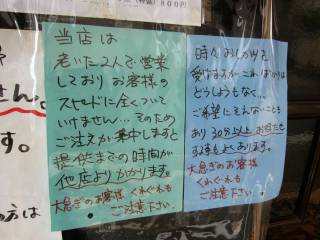 800円
当店は
老いた2人で営業
しており お客様の
スピードに全くついて
いけません… そのため
ご注文が集中しますと
提供までの時間が
他店よりかかります。
大急ぎのお客様 くれぐれも
ご注意下さい
時々おしかりを
受けますが こればかりは
どうしようもなく…
ご希望にそえないことも
あり 30分以上お待たせ
することもよくあります…
大急ぎのお客様
くれぐれも
ご注意下さい
せん。
す。
の方は